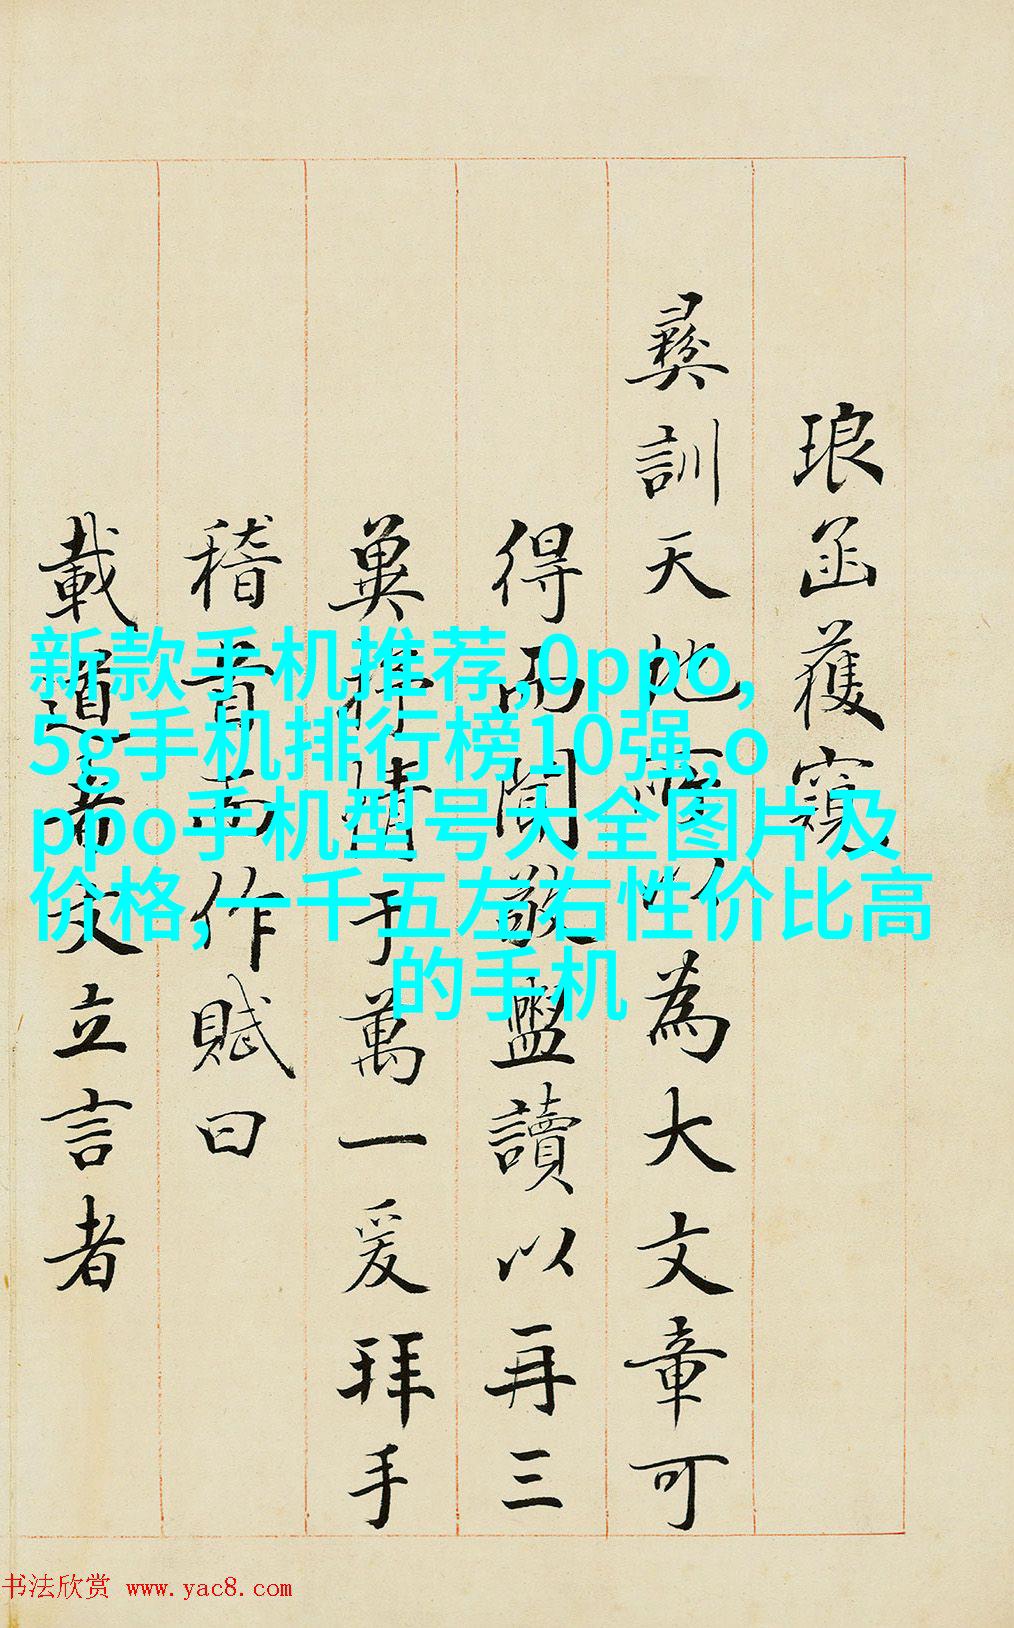 琅函獲窺
彝訓天地所以為大文章可
得而聞敬盥讀以再三
冀情于萬一爰拜手
稽首作賦曰
載道者文立言者
新款手机推荐,0ppo,
5g手机排行榜10强,o
ppo手机型号大全图片及
价格,一千五左右性价比高
的手机
书法欣赏 www.yac8.com